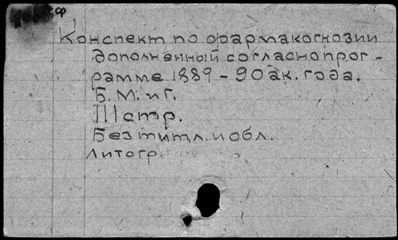 ф
Конспект по фармакогнозии
дополненный согласно прог-
рамме 1889-90 ак. года.
Б.М. и Г.
111 стр.
Без титл. и обл.
Литогр.